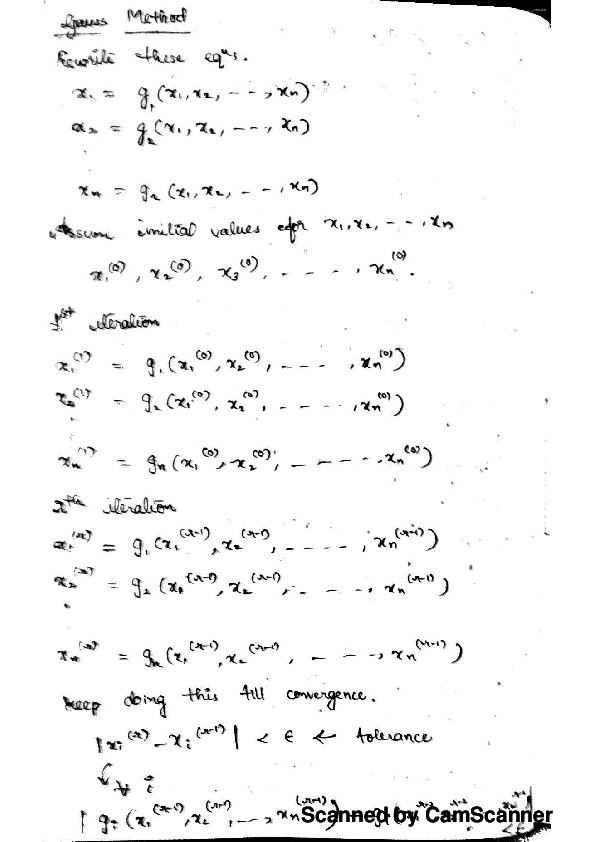 Gauss Method
Rewrite these eqⁿs.
x₁ = g₁(x₁, x₂, ---, xₙ)
x₂ = g₂(x₁, x₂, ---, xₙ)
xₙ = g₂(x₁, x₂, --, xₙ)
Assum initial values for x₁, x₂, --, xₙ
x₁⁽⁰⁾, x₂⁽⁰⁾, x₃⁽⁰⁾, ----, xₙ⁽⁰⁾.
1st iteration
x₁⁽¹⁾ = g₁(x₁⁽⁰⁾, x₂⁽⁰⁾, ----, xₙ⁽⁰⁾)
x₂⁽¹⁾ = g₂(x₁⁽⁰⁾, x₂⁽⁰⁾, ----, xₙ⁽⁰⁾)
xₙ⁽¹⁾ = gₙ(x₁⁽⁰⁾, x₂⁽⁰⁾, ----, xₙ⁽⁰⁾)
rth iteration
x₁⁽ʳ⁾ = g₁(x₁⁽ʳ⁻¹⁾, x₂⁽ʳ⁻¹⁾, ----, xₙ⁽ʳ⁻¹⁾)
x₂⁽ʳ⁾ = g₂(x₁⁽ʳ⁻¹⁾, x₂⁽ʳ⁻¹⁾, ----, xₙ⁽ʳ⁻¹⁾)
xₙ⁽ʳ⁾ = gₙ(x₁⁽ʳ⁻¹⁾, x₂⁽ʳ⁻¹⁾, ---, xₙ⁽ʳ⁻¹⁾)
keep doing this till convergence.
|xᵢ⁽ʳ⁾ - xᵢ⁽ʳ⁻¹⁾| < ε ← tolerance
↳ ∀ i
| gᵢ (x₁⁽ʳ⁻¹⁾, x₂⁽ʳ⁻¹⁾, --, xₙ⁽ʳ⁻¹⁾)
Scanned by CamScanner